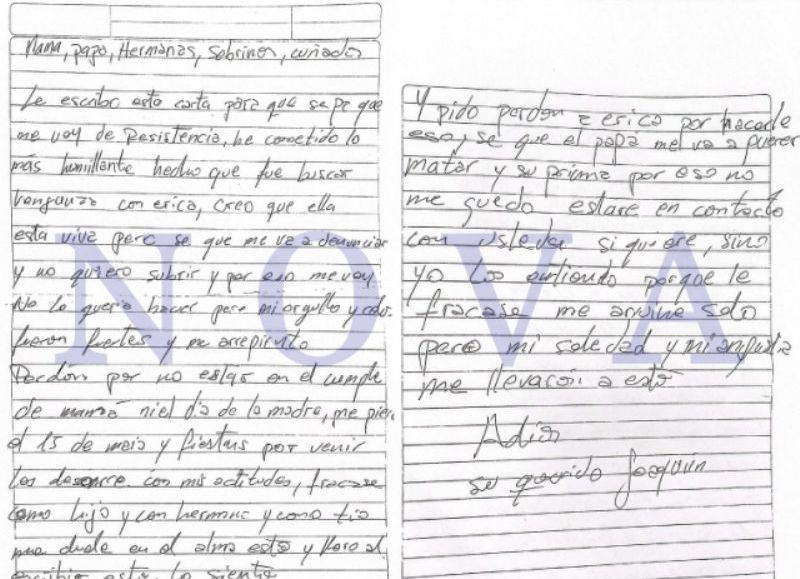 Mama, papa, Hermanas, Sobrinos, cuñados
Le escribo esta carta para que sepa que
me voy de Resistencia, he cometido lo
más humillante hecho que fue buscar
venganza con erica, creo que ella
esta viva pero se que me va a denunciar
y no quiero subrir y por eso me voy
No lo queria hacer pero mi orgullo y odio
fueron fuertes y me arrepiento
Perdón por no estar en el cumple
de mamá ni el dia de la madre, me pier
el 15 de maia y fiestas por venir
los desonre con mis actitudes, fracase
como hijo y com hermano y como tio
me duele en el alma esto y lloro al
escribir esto, lo siento
Y pido perdon a erica por hacerle
eso, se que el papá me va a querer
matar y su prima por eso no
me quedo estare en contacto
con ustedes si quiere, sino
yo los entiendo porque le
fracase me arruine solo
pero mi soledad y mi angustia
me llevaron a esto
Adios
su querido Joaquín
NOVA